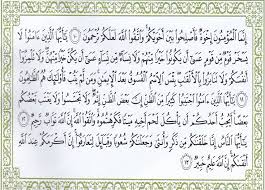 إِنَّمَا ٱلْمُؤْمِنُونَ إِخْوَةٌ فَأَصْلِحُوا۟ بَيْنَ أَخَوَيْكُمْ وَٱتَّقُوا۟ ٱللَّهَ لَعَلَّكُمْ تُرْحَمُونَ ١٠ يَٰٓأَيُّهَا ٱلَّذِينَ ءَامَنُوا۟ لَا
يَسْخَرْ قَوْمٌ مِّن قَوْمٍ عَسَىٰٓ أَن يَكُونُوا۟ خَيْرًا مِّنْهُمْ وَلَا نِسَآءٌ مِّن نِّسَآءٍ عَسَىٰٓ أَن يَكُنَّ خَيْرًا مِّنْهُنَّ وَلَا تَلْمِزُوٓا۟
أَنفُسَكُمْ وَلَا تَنَابَزُوا۟ بِٱلْأَلْقَٰبِ بِئْسَ ٱلِٱسْمُ ٱلْفُسُوقُ بَعْدَ ٱلْإِيمَٰنِ وَمَن لَّمْ يَتُبْ فَأُو۟لَٰٓئِكَ هُمُ ٱلظَّٰلِمُونَ
١١ يَٰٓأَيُّهَا ٱلَّذِينَ ءَامَنُوا۟ ٱجْتَنِبُوا۟ كَثِيرًا مِّنَ ٱلظَّنِّ إِنَّ بَعْضَ ٱلظَّنِّ إِثْمٌ وَلَا تَجَسَّسُوا۟ وَلَا يَغْتَب بَّعْضُكُم
بَعْضًا أَيُحِبُّ أَحَدُكُمْ أَن يَأْكُلَ لَحْمَ أَخِيهِ مَيْتًا فَكَرِهْتُمُوهُ وَٱتَّقُوا۟ ٱللَّهَ إِنَّ ٱللَّهَ تَوَّابٌ رَّحِيمٌ ١٢
يَٰٓأَيُّهَا ٱلنَّاسُ إِنَّا خَلَقْنَٰكُم مِّن ذَكَرٍ وَأُنثَىٰ وَجَعَلْنَٰكُمْ شُعُوبًا وَقَبَآئِلَ لِتَعَارَفُوٓا۟ إِنَّ أَكْرَمَكُمْ عِندَ ٱللَّهِ
أَتْقَىٰكُمْ إِنَّ ٱللَّهَ عَلِيمٌ خَبِيرٌ ١٣